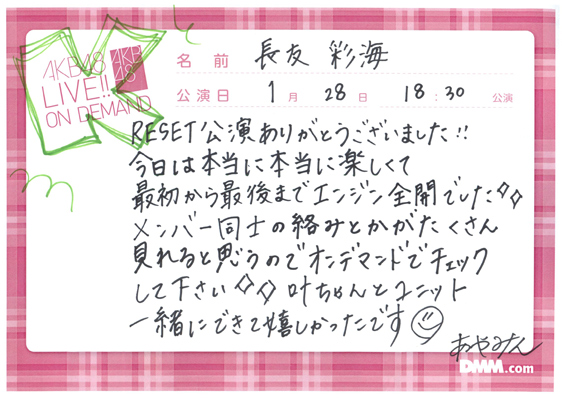 AKB48
LIVE!!
ON DEMAND
AKB
48
名前 長友 彩海
公演日 1月 28日 18:30 公演
RESET公演ありがとうございました!!
今日は本当に本当に楽しくて
最初から最後までエンジン全開でした
メンバー同士の絡みとかがたくさん
見れると思うのでオンデマンドでチェック
して下さい 叶ちゃんとユニット
一緒にできて嬉しかったです
あやみん
DMM.com